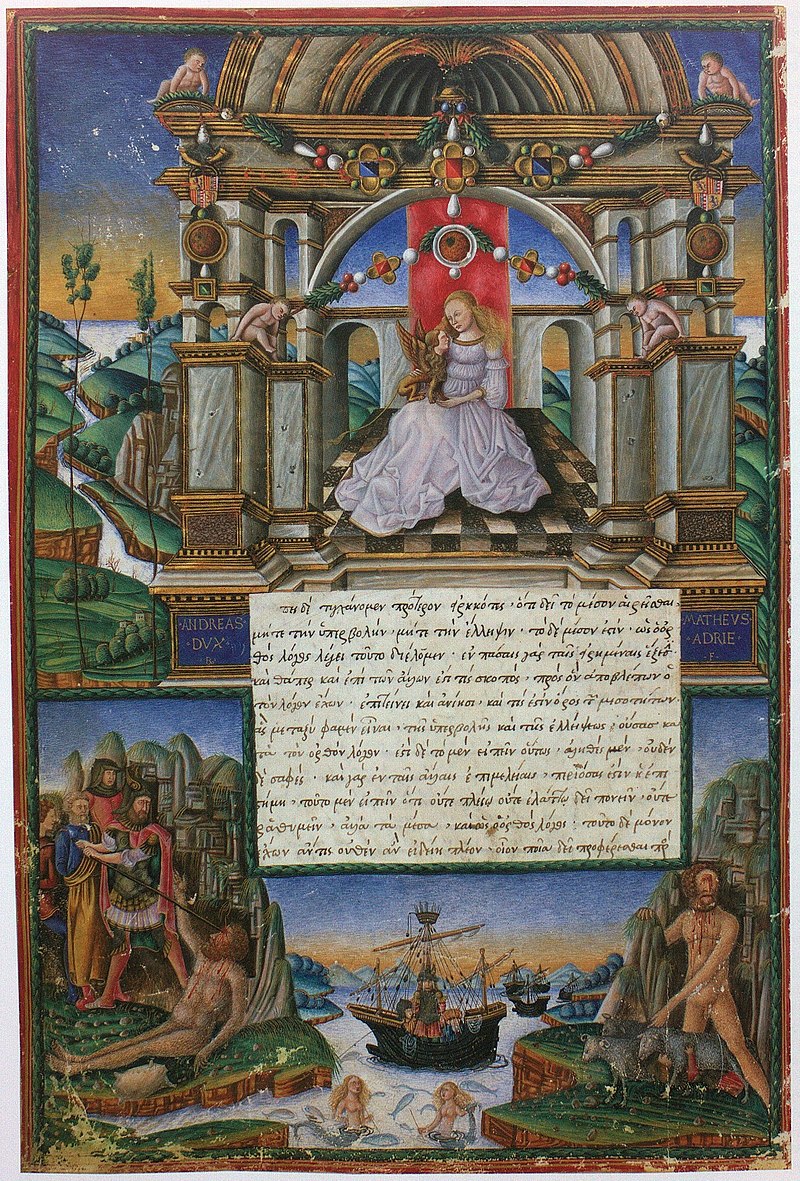 ANDREAS
DVX
MATHEVS
ADRIE
F
πει δὲ τυγχάνομεν πρότερον εἰρηκότες · ὅτι δεῖ τὸ μέσον αἱρεῖσθαι ·
μήτε τὴν ὑπερβολὴν · μήτε τὴν ἔλλειψιν · τὸ δὲ μέσον ἐστὶν · ὡς ὁ ὀρ
θὸς λόγος λέγει τοῦτο διέλομεν · ἐν πάσαις γὰρ ταῖς εἰρημέναις ἕξεσι
καθάπερ καὶ ἐπὶ τῶν ἄλλων ἐστί τις σκοπὸς · πρὸς ὃν ἀποβλέπων ὁ
τὸν λόγον ἔχων · ἐπιτείνει καὶ ἀνίησι · καί τις ἐστὶν ὅρος τῶν μεσοτήτων
ἃς μεταξύ φαμεν εἶναι · τῆς ὑπερβολῆς καὶ τῆς ἐλλείψεως · οὔσας κα
τὰ τὸν ὀρθὸν λόγον · ἐστὶ δὲ τὸ μὲν εἰπεῖν οὕτως · ἀληθὲς μέν · οὐδὲν
δὲ σαφές · καὶ γὰρ ἐν ταῖς ἄλλαις ἐπιμελείαις · περὶ ὅσας ἐστὶν ἐπι
στήμη · τοῦτο μὲν εἰπεῖν ὅτι οὔτε πλείω οὔτε ἐλάττω δεῖ πονεῖν · οὔτε
ῥᾳθυμεῖν · ἀλλὰ τὰ μέσα · καὶ ὡς ὁ ὀρθὸς λόγος · τοῦτο δὲ μόνον
ἔχων ἄν τις οὐθὲν ἂν εἰδείη πλέον · οἷον ποῖα δεῖ προσφέρεσθαι πρ